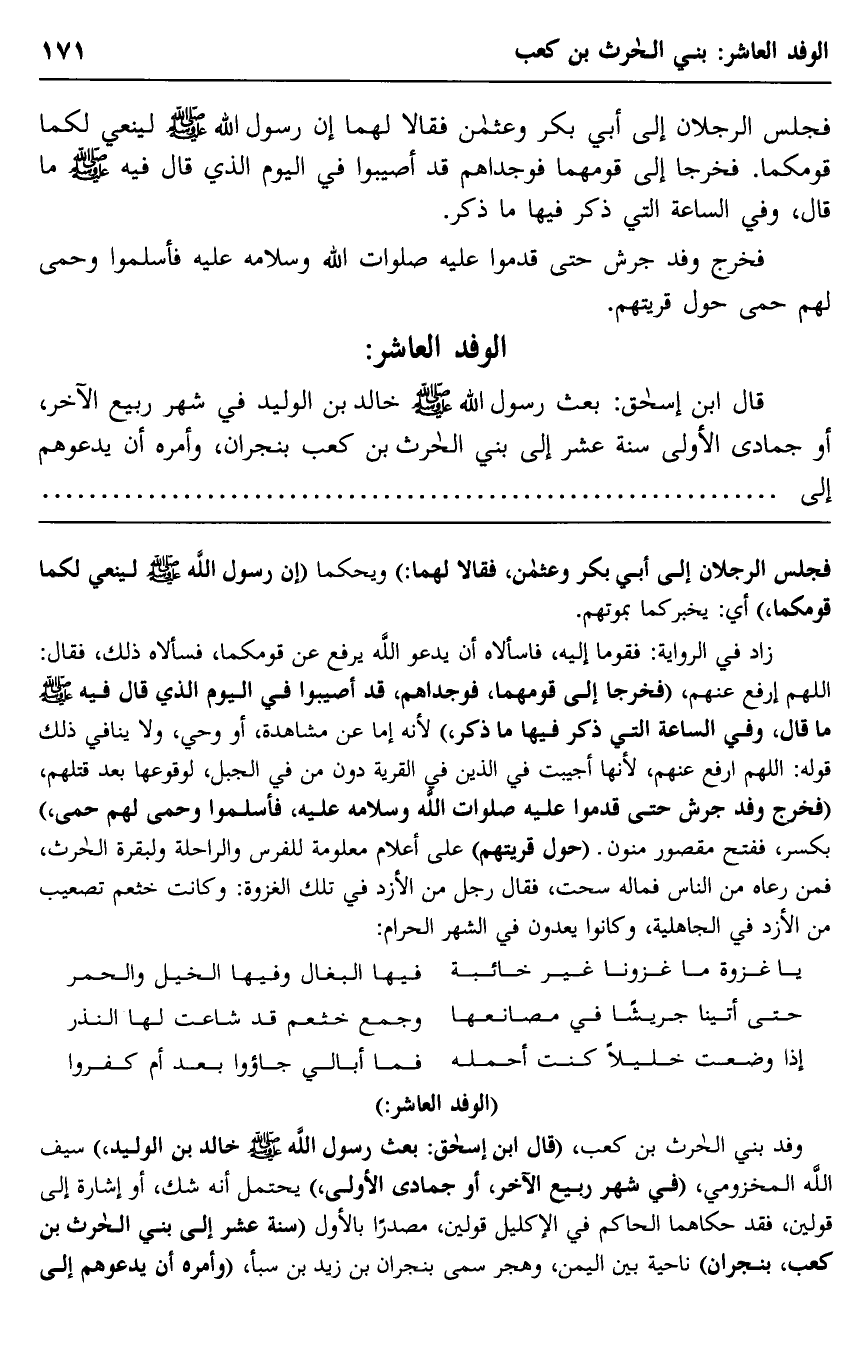 الوفد العاشر: بني الحٰرث بن كعب ١٧١
فجلس الرجلان إلى أبي بكر وعثمٰن فقالا لهما إن رسول الله ﷺ لينعي لكما
قومكما. فخرجا إلى قومهما فوجداهم قد أصيبوا في اليوم الذي قال فيه ﷺ ما
قال، وفي الساعة التي ذكر فيها ما ذكر.
فخرج وفد جرش حتى قدموا عليه صلوات الله وسلامه عليه فأسلموا وحمى
لهم حمى حول قريتهم.
الوفد العاشر:
قال ابن إسحٰق: بعث رسول الله ﷺ خالد بن الوليد في شهر ربيع الآخر،
أو جمادى الأولى سنة عشر إلى بني الحٰرث بن كعب بنجران، وأمره أن يدعوهم
إلى ................................................................
فجلس الرجلان إلى أبي بكر وعثمٰن، فقالا لهما:) ويحكما (إن رسول اللَّه ﷺ لينعي لكما
قومكما،) أي: يخبركما بموتهم.
زاد في الرواية: فقوما إليه، فاسألاه أن يدعو اللَّه يرفع عن قومكما، فسألاه ذلك، فقال:
اللهم إرفع عنهم، (فخرجا إلى قومهما، فوجداهم، قد أصيبوا في اليوم الذي قال فيه ﷺ
ما قال، وفي الساعة التي ذكر فيها ما ذكر،) لأنه إما عن مشاهدة، أو وحي، ولا ينافي ذلك
قوله: اللهم ارفع عنهم، لأنها أجيبت في الذين في القرية دون من في الجبل، لوقوعها بعد قتلهم،
(فخرج وفد جرش حتى قدموا عليه صلوات اللَّه وسلامه عليه، فأسلموا وحمى لهم حمى،)
بكسر، ففتح مقصور منون. (حول قريتهم) على أعلام معلومة للفرس والراحلة ولبقرة الحٰرث،
فمن رعاه من الناس فماله سحت، فقال رجل من الأزد في تلك الغزوة: وكانت خثعم تصعيب
من الأزد في الجاهلية، وكانوا يعدون في الشهر الحرام:
يا غزوة ما غزونا غير خائبة فيها البغال وفيها الخيل والحمر
حتى أتينا جريشًا في مصانعها وجمع خثعم قد شاعت لها النذر
إذا وضعت خليلاً كنت أحمله فما أبالي جاؤوا بعد أم كفروا
(الوفد العاشر:)
وفد بني الحٰرث بن كعب، (قال ابن إسحٰق: بعث رسول اللَّه ﷺ خالد بن الوليد،) سيف
اللَّه المخزومي، (في شهر ربيع الآخر، أو جمادى الأولى،) يحتمل أنه شك، أو إشارة إلى
قولين، فقد حكاهما الحاكم في الإكليل قولين، مصدرًا بالأول (سنة عشر إلى بني الحٰرث بن
كعب، بنجران) ناحية بين اليمن، وهجر سمى بنجران بن زيد بن سبأ، (وأمره أن يدعوهم إلى